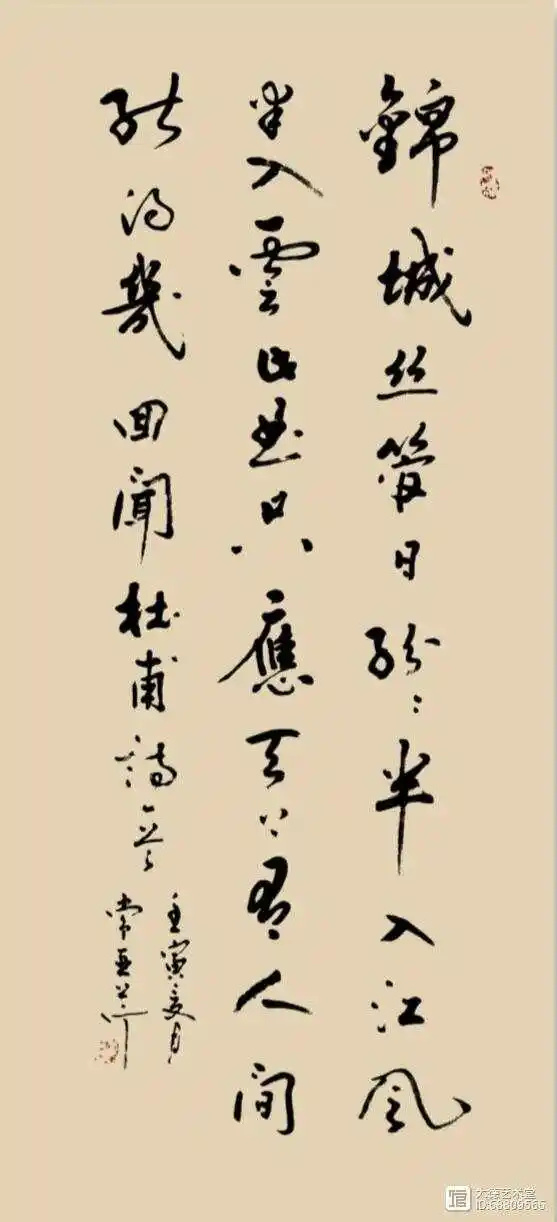 錦城丝管日紛〻半入江風
半入雲此曲只應天上有人間
能得幾回聞杜甫詩一首
壬寅夏月
常亚
艺术堂
ID:68809566